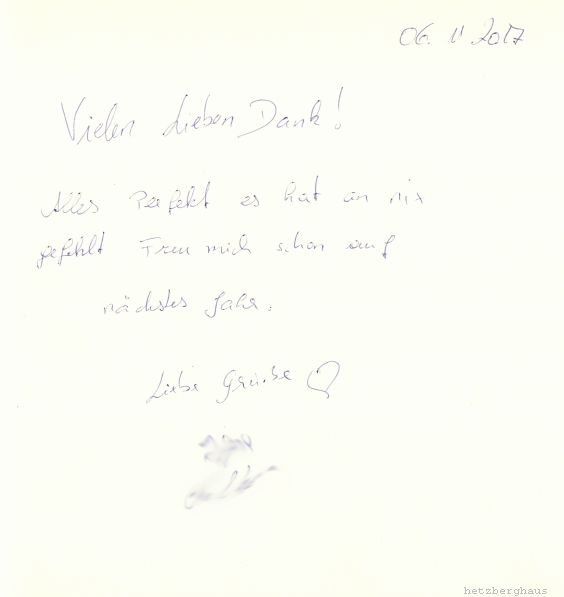 06. 11 2017
Vielen Lieben Dank!
Alles Perfekt es hat an nix
gefehlt Freu mich schon auf
nächstes Jahr.
Liebe Grüße
hetzberghaus